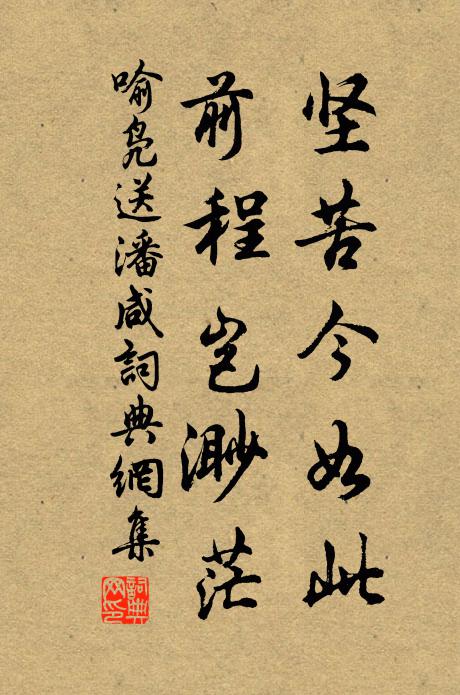 坚苦今如此
前程岂渺茫
喻凫送潘咸詞典網集
詞典网印